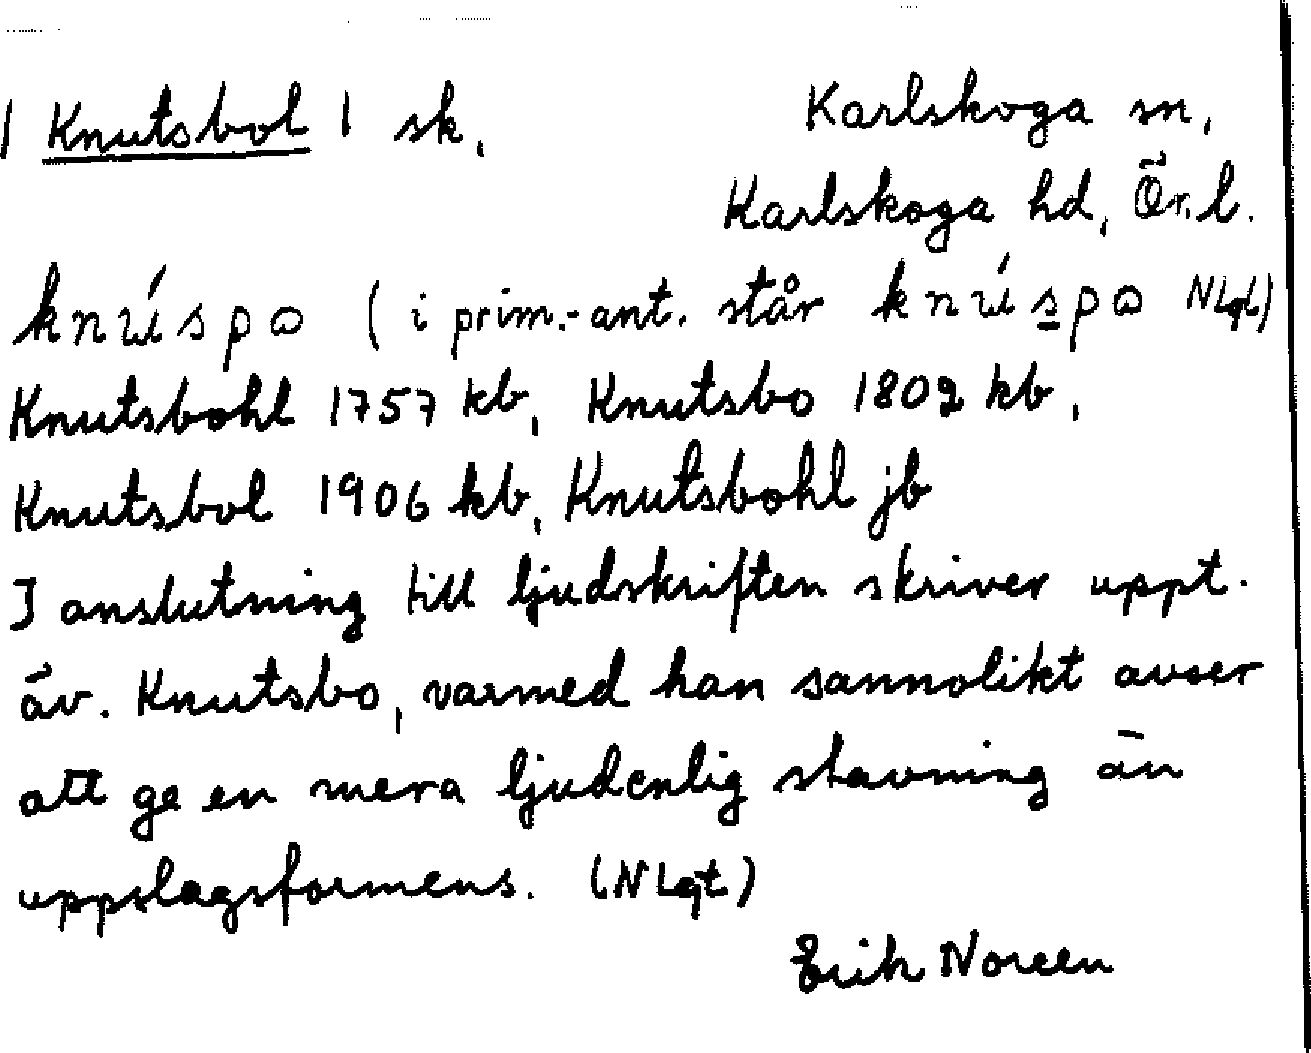 | Knutsbol | sk.
Karlskoga sn,
Karlskoga hd, Ör. l.
knúspo (i prim.-ant. står knúspo NLqt)
Knutsbohl 1757 kb, Knutsbo 1802 kb,
Knutsbol 1906 kb, Knutsbohl jb
I anslutning till ljudskriften skriver uppt.
äv. Knutsbo, varmed han sannolikt avser
att ge en mera ljudenlig stavning än
uppslagsformens. (NLqt)
Erik Noreen